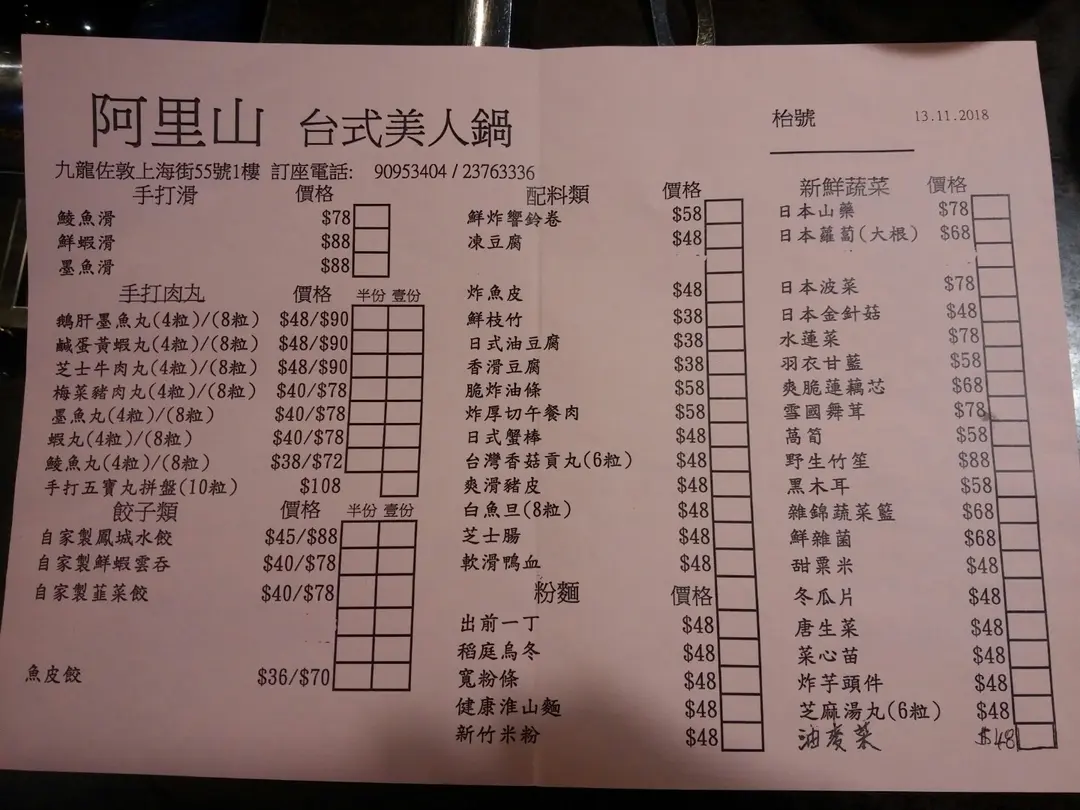 阿里山 台式美人鍋
枱號
13.11.2018
九龍佐敦上海街55號1樓 訂座電話: 90953404 / 23763336
手打滑 價格
鯪魚滑 $78
鮮蝦滑 $88
墨魚滑 $88
手打肉丸 價格 半份 壹份
鵝肝墨魚丸(4粒)/(8粒) $48/$90
鹹蛋黃蝦丸(4粒)/(8粒) $48/$90
芝士牛肉丸(4粒)/(8粒) $48/$90
梅菜豬肉丸(4粒)/(8粒) $40/$78
墨魚丸(4粒)/(8粒) $40/$78
蝦丸(4粒)/(8粒) $40/$78
鯪魚丸(4粒)/(8粒) $38/$72
手打五寶丸拼盤(10粒) $108
餃子類 價格 半份 壹份
自家製鳳城水餃 $45/$88
自家製鮮蝦雲吞 $40/$78
自家製韮菜餃 $40/$78
魚皮餃 $36/$70
配料類 價格
鮮炸響鈴卷 $58
凍豆腐 $48
炸魚皮 $48
鮮枝竹 $38
日式油豆腐 $38
香滑豆腐 $38
脆炸油條 $58
炸厚切午餐肉 $58
日式蟹棒 $48
台灣香菇貢丸(6粒) $48
爽滑豬皮 $48
白魚旦(8粒) $48
芝士腸 $48
軟滑鴨血 $48
粉麵 價格
出前一丁 $48
稻庭烏冬 $48
寬粉條 $48
健康淮山麵 $48
新竹米粉 $48
新鮮蔬菜 價格
日本山藥 $78
日本蘿蔔(大根) $68
日本波菜 $78
日本金針菇 $48
水蓮菜 $78
羽衣甘藍 $58
爽脆蓮藕芯 $68
雪國舞茸 $78
萵筍 $58
野生竹笙 $88
黑木耳 $58
雜錦蔬菜籃 $68
鮮雜菌 $68
甜粟米 $48
冬瓜片 $48
唐生菜 $48
菜心苗 $48
炸芋頭件 $48
芝麻湯丸(6粒) $48
油麥菜 $48